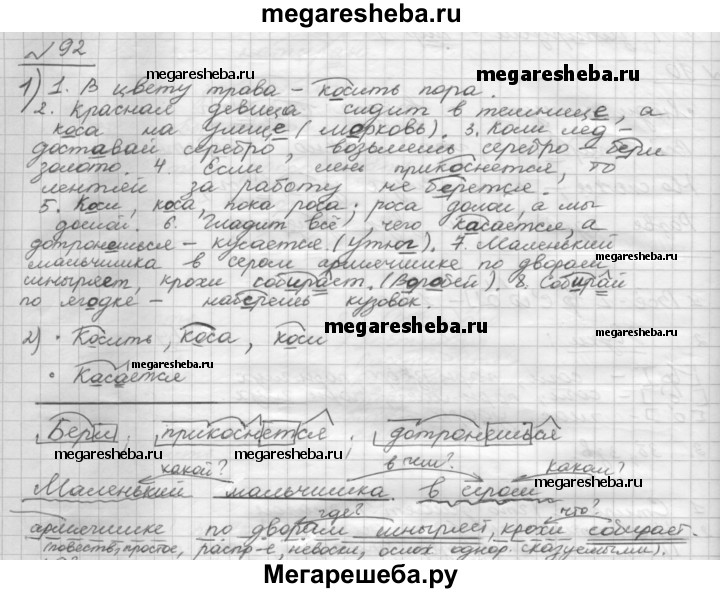 megaresheba.ru
№92
megaresheba.ru megaresheba.ru
1) 1. В цвету трава – косить пора.
2. Красная девица сидит в темнице, а
коса на улице (морковь). 3. Коли лед-
доставай серебро, возьмешь серебро – бери
золото. 4. Если лени прикоснется, то
лентяй за работу не берется.
5. Коси, коса, пока роса; роса долой, а мы
домой. 6. Гладит всё, чего касается, а
дотронешься – кусается. (утюг). 7. Маленький
мальчишка в сером армячишке по дворам
шныряет, крохи собирает. (Воробей). 8. Собирай
по ягодке – наберешь кузовок.
megaresheba.ru megaresheba.ru
2) • Косить, коса, коси
megaresheba.ru megaresheba.ru
• Касается
megaresheba.ru
Бери, прикоснется, дотронешься
какой? в чем? каком?
megaresheba.ru megaresheba.ru
Маленький мальчишка в сером
где? что?
армячишке по дворам шныряет, крохи собирает.
(повеств, простое, распр-е, невоскл, ослож. однор. сказуемыми).
Мегарешеба.ру